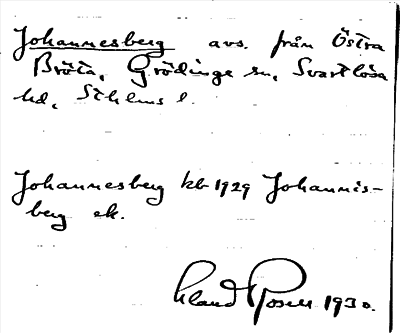 Johannesberg avs. från Östra
Bröta, Grödinge sn, Svartlösa
hd, Sthlms l.
Johannesberg kb 1929 Johannis-
berg ek.
Rosen 1930.